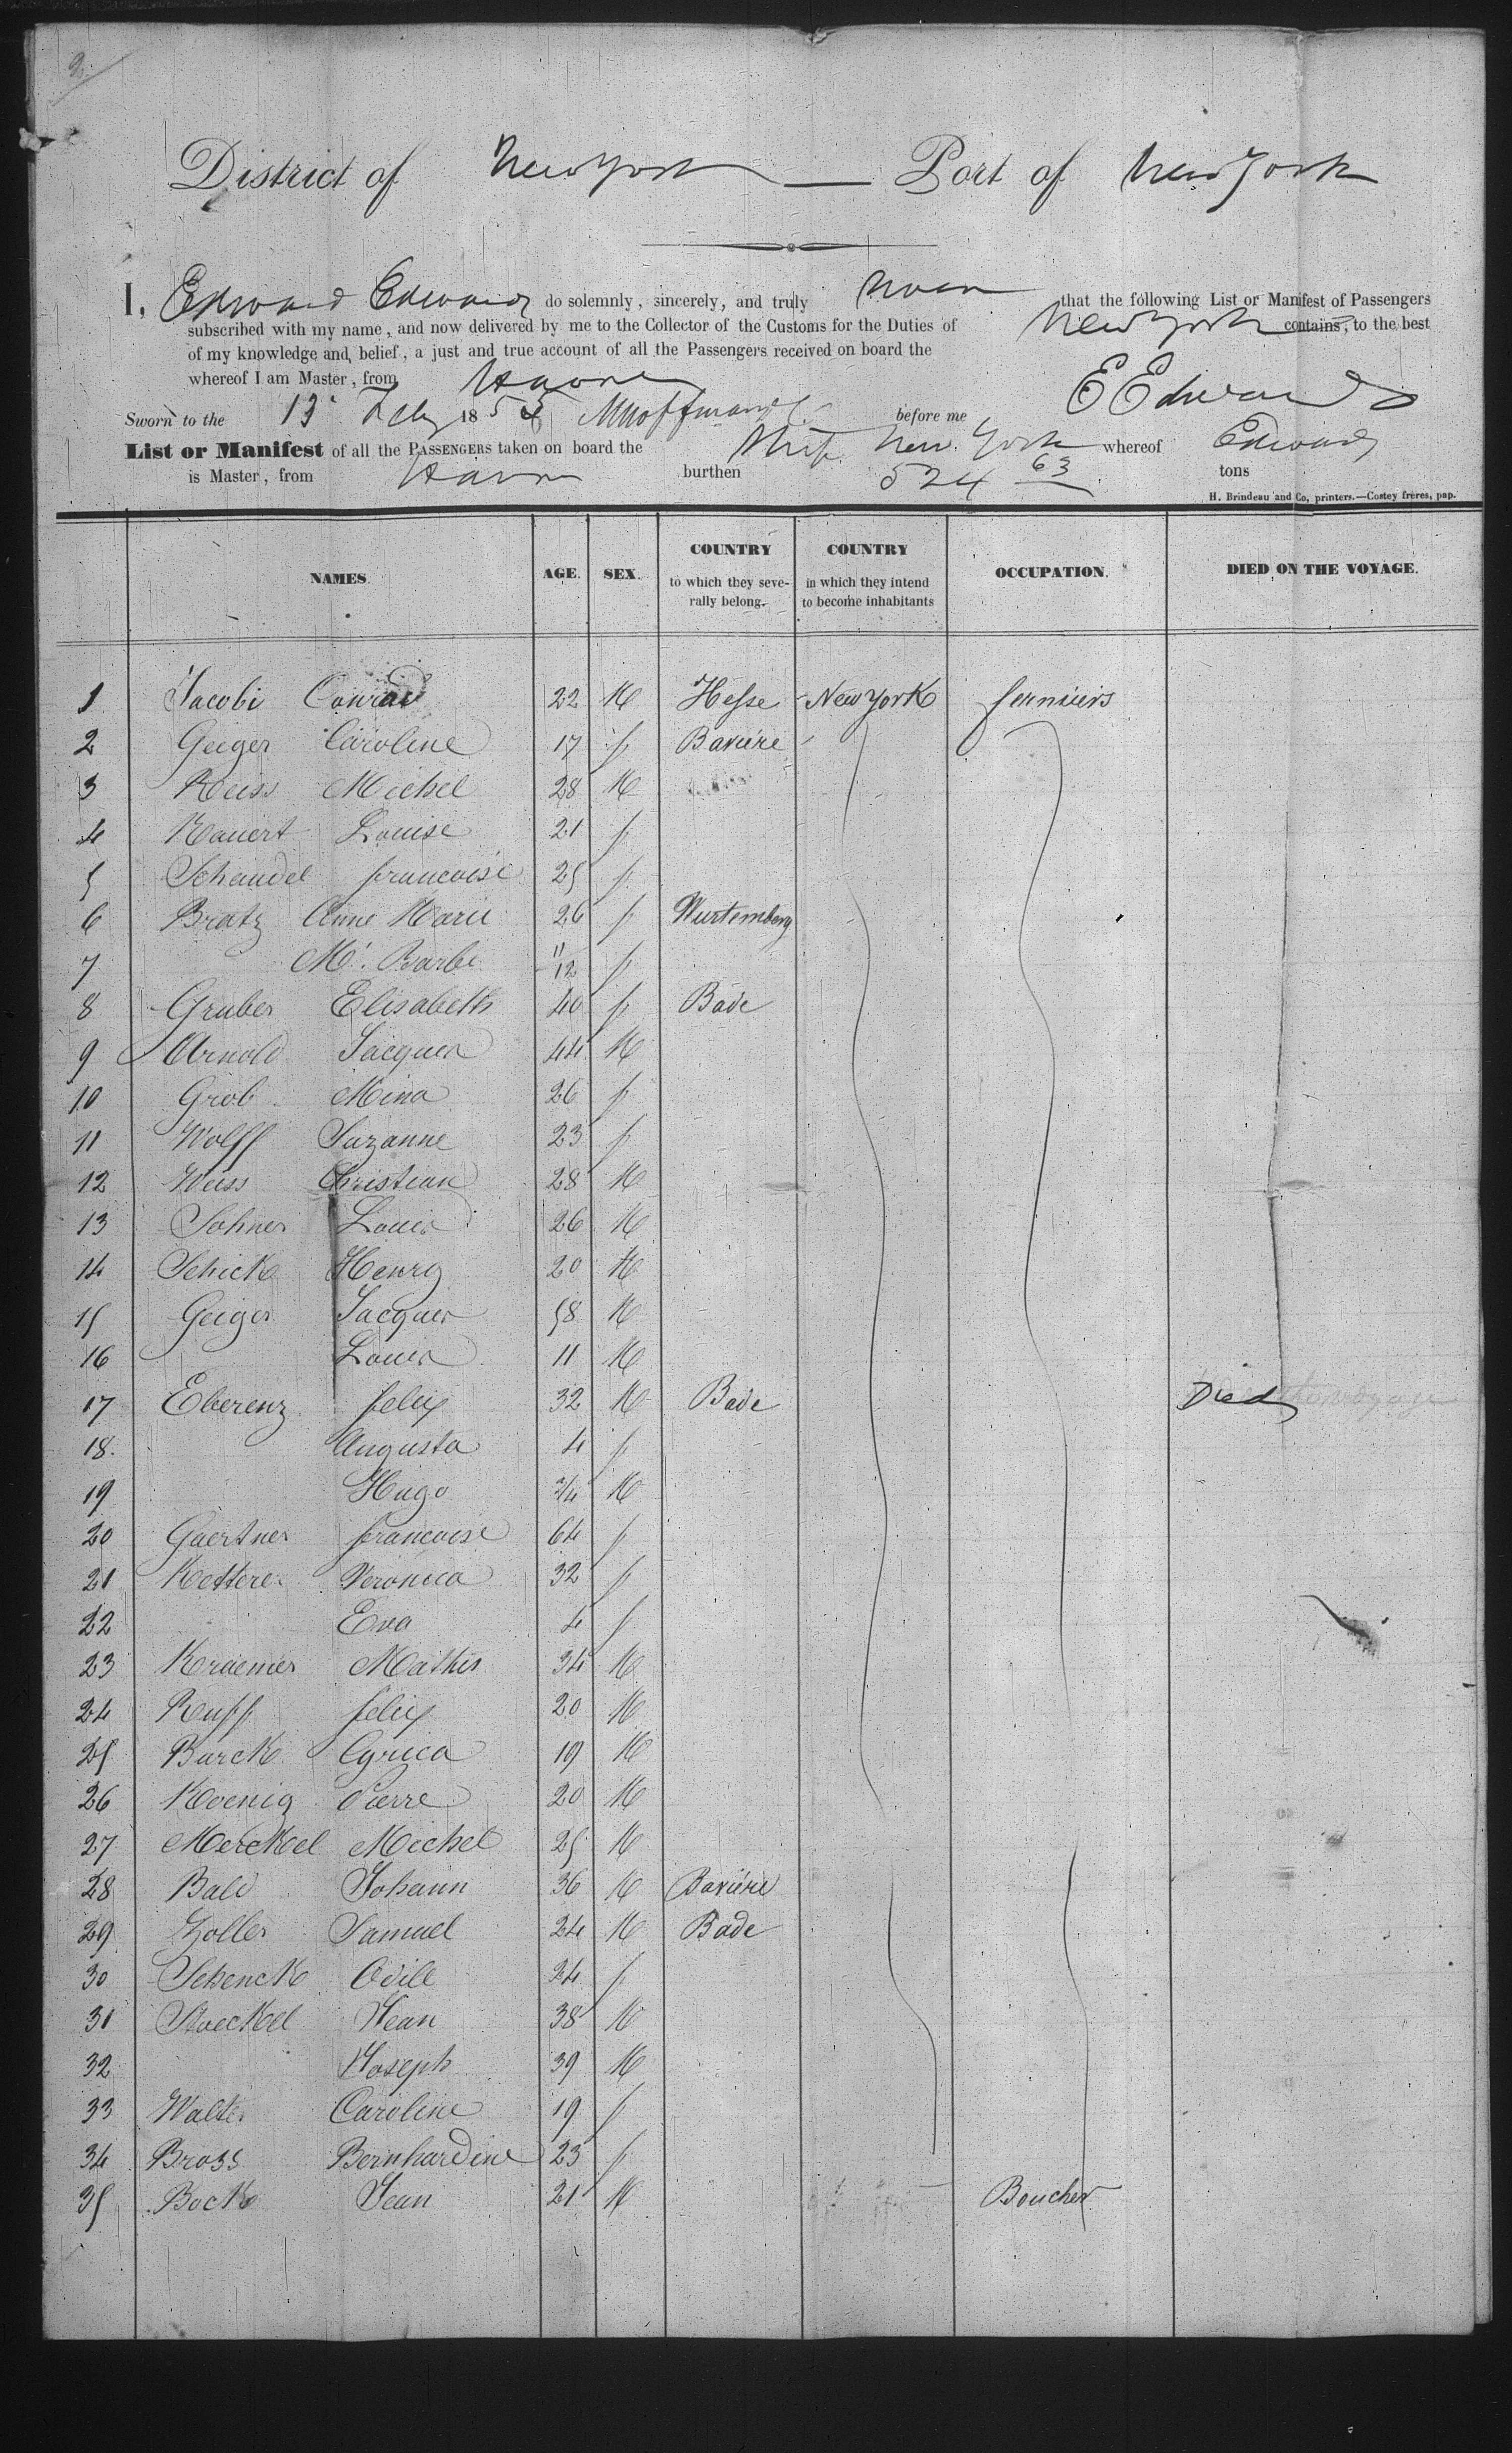 District of New York Port of New York
I, Edward Edwards do solemnly, sincerely, and truly swear that the following List or Manifest of Passengers
subscribed with my name, and now delivered by me to the Collector of the Customs for the Duties of New York contains, to the best
of my knowledge and belief, a just and true account of all the Passengers received on board the
whereof I am Master, from Havre
E Edwards
Sworn to the 13 Feby 185 before me
List or Manifest of all the PASSENGERS taken on board the Ship New York whereof Edwards
is Master, from Havre burthen 524 63 tons
H. Brindeau and Co, printers.—Costey frères, pap.
NAMES. AGE. SEX. COUNTRY to which they severally belong. COUNTRY in which they intend to become inhabitants OCCUPATION. DIED ON THE VOYAGE.
1 Jacobi Conrad 22 M Hesse New York fermiers
2 Geiger Caroline 17 f Bavière
3 Reiss Michel 28 M
4 Kauert Louise 21 f
5 Schaudel francoise 25 f
6 Bratz Anne Marie 26 f Wurtemberg
7 M. Barbe 11/12 f
8 Gruber Elisabeth 40 f Bade
9 Arnold Jacques 44 M
10 Grob Mina 26 f
11 Wolff Suzanne 23 f
12 Weiss Christian 28 M
13 Sohner Louis 26 M
14 Schick Henry 20 M
15 Geiger Jacques 58 M
16 Louis 11 M
17 Eberenz felix 32 M Bade Died
18. Augusta 4 f
19 Hugo 3/4 M
20 Gaertner francoise 64 f
21 Ketterer Veronica 32 f
22 Eva 4 f
23 Kraemer Mathis 34 M
24 Rupp felix 20 M
25 Burck Cyrica 19 M
26 Koenig Pierre 20 M
27 Merckel Michel 25 M
28 Bald Johann 36 M Bavière
29 Zoller Samuel 24 M Bade
30 Schenck Odile 24 f
31 Stoeckel Jean 38 M
32 Joseph 39 M
33 Walter Caroline 19 f
34 Bross Bernhardine 23 f
35 Bock Jean 21 M Boucher